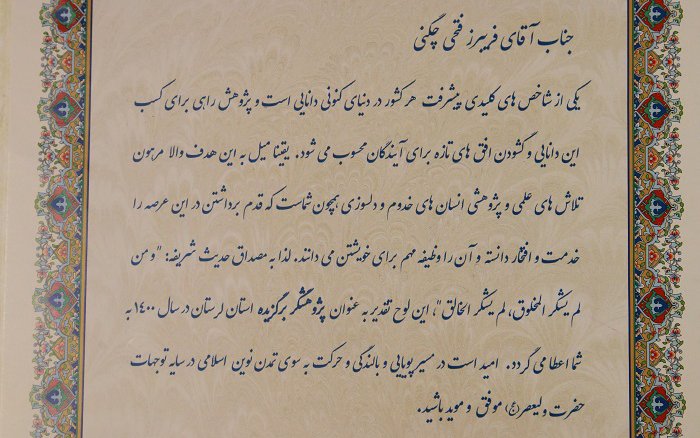 جناب آقای فریبرز فتحی چگنی
یکی از شاخص های کلیدی پیشرفت هر کشور در دنیای کنونی دانایی است و پژوهش راهی برای کسب
این دانایی و گشودن افق های تازه برای آیندگان محسوب می شود. یقینا میل به این هدف والا مرهون
تلاش های علمی و پژوهشی انسان های خدوم و دلسوزی همچون شماست که قدم برداشتن در این عرصه را
خدمت و افتخار دانسته و آن را وظیفه مهم برای خویشتن می دانند. لذا به مصداق حدیث شریفه: "و من
لم یشکر المخلوق، لم یشکر الخالق"، این لوح تقدیر به عنوان پژوهشگر برگزیده استان لرستان در سال ۱۴۰۰ به
شما اعطا می گردد. امید است در مسیر پویایی و بالندگی و حرکت به سوی تمدن نوین اسلامی در سایه توجهات
حضرت ولیعصر(ع) موفق و موید باشید.